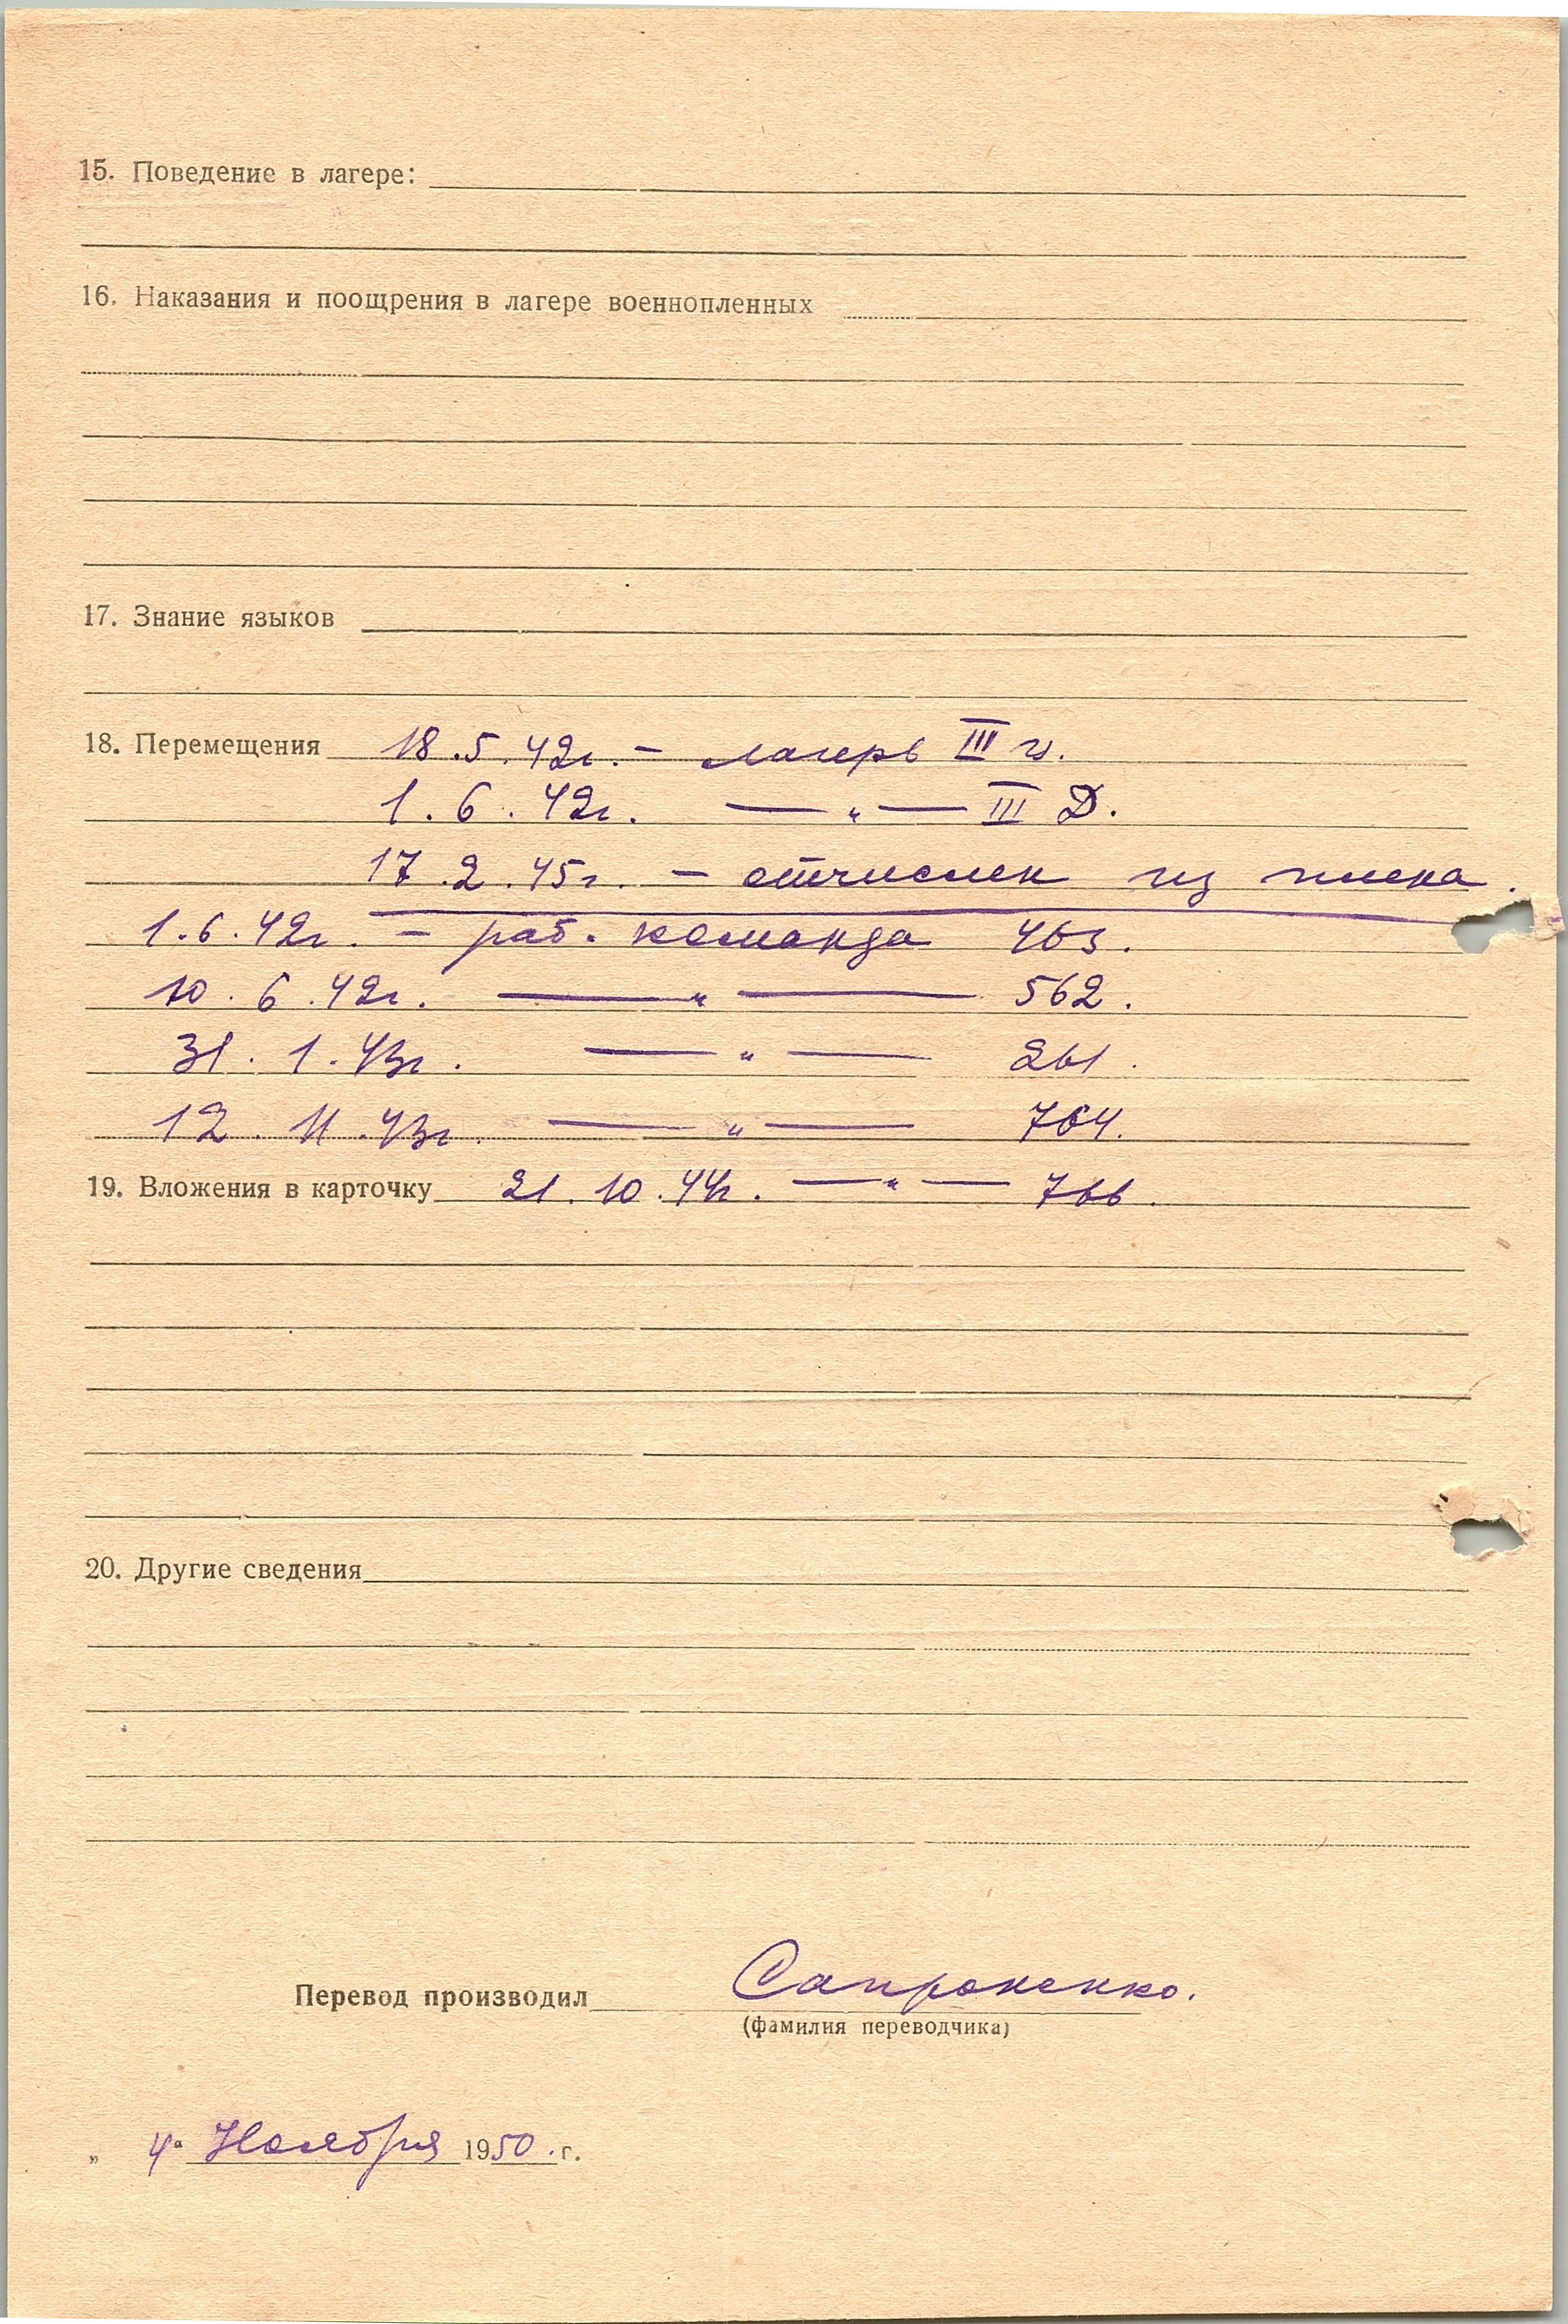 15. Поведение в лагере:
16. Наказания и поощрения в лагере военнопленных
17. Знание языков
18. Перемещения 18.5.42г. – лагерь III
1.6.42г. —„— III Д.
17.2.45г. – отчислен из плена.
1.6.42г. – раб. команда 463.
10.6.42г. —„— 562.
31.1.43г. —„— 261.
12.11.43г. —„— 764.
19. Вложения в карточку 21.10.44г. —„— 766.
20. Другие сведения
Перевод производил Сапроненко.
(фамилия переводчика)
„ 4" Ноября 1950. г.